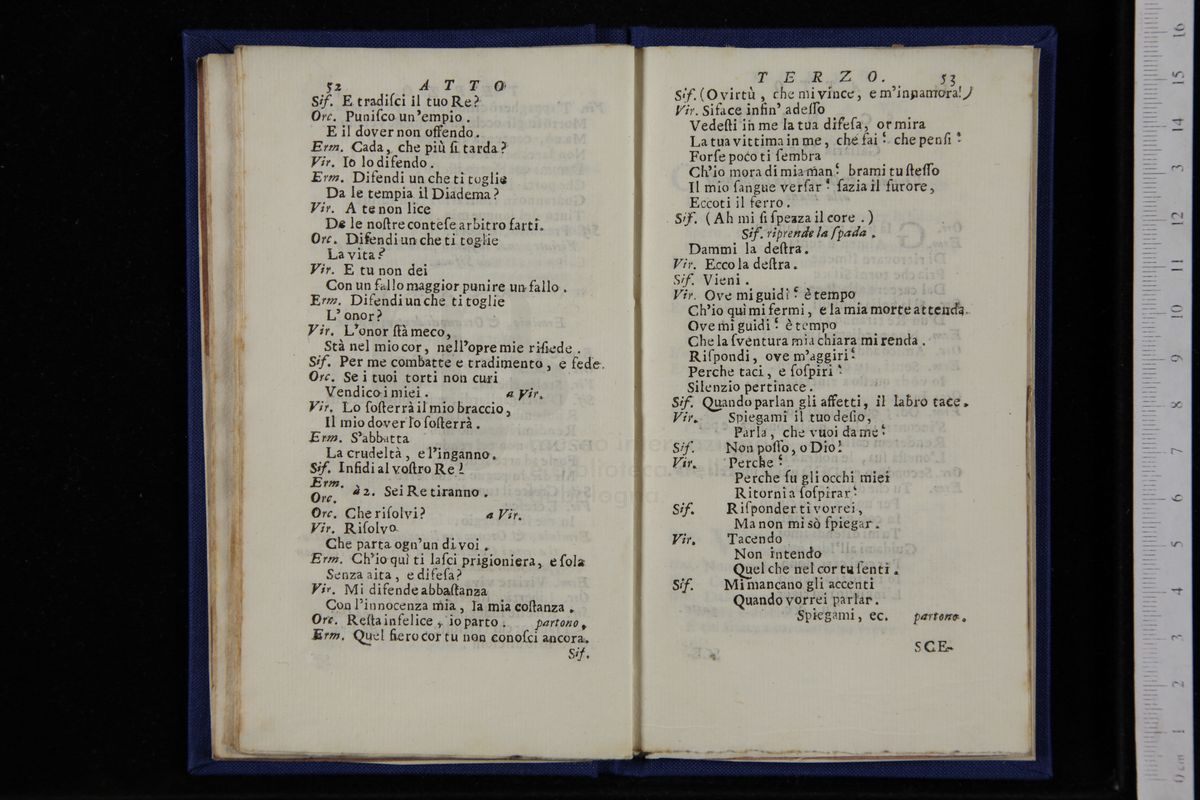 52 ATTO
Sif. E tradiſci il tuo Re?
Orc. Puniſco un'empio.
E il dover non offendo.
Erm. Cada, che più ſi tarda?
Vir. Io lo difendo.
Erm. Difendi un che ti toglie
Da le tempia il Diadema?
Vir. A te non lice
De le noſtre conteſe arbitro farti.
Orc. Difendi un che ti toglie
La vita?
Vir. E tu non dei
Con un fallo maggior punire un fallo.
Erm. Difendi un che ti toglie
L'onor?
Vir. L'onor ſtà meco,
Stà nel mio cor, nell'opre mie riſiede.
Sif. Per me combatte e tradimento, e fede.
Orc. Se i tuoi torti non curi
Vendico i miei. a Vir.
Vir. Lo ſoſterrà il mio braccio,
Il mio dover lo ſoſterrà.
Erm. S'abbatta
La crudeltà, e l'inganno.
Sif. Infidi al voſtro Re!
Erm.
Orc. à 2. Sei Re tiranno.
Orc. Che riſolvi? a Vir.
Vir. Riſolvo
Che parta ogn'un di voi.
Erm. Ch'io quì ti laſci prigioniera, e ſola
Senza aita, e difeſa?
Vir. Mi difende abbaſtanza
Con l'innocenza mia, la mia coſtanza.
Orc. Reſta infelice, io parto. partono.
Erm. Quel fiero cor tu non conoſci ancora.
Sif.
TERZO. 53
Sif. (O virtù, che mi vince, e m'innamora!)
Vir. Siface infin' adeſſo
Vedeſti in me la tua difeſa, or mira
La tua vittima in me, che fai? che penſi?
Forſe poco ti ſembra
Ch'io mora di mia man? brami tu ſteſſo
Il mio ſangue verſar? ſazia il furore,
Eccoti il ferro.
Sif. (Ah mi ſi ſpezza il core.)
Sif. riprende la ſpada.
Dammi la deſtra.
Vir. Ecco la deſtra.
Sif. Vieni.
Vir. Ove mi guidi? è tempo
Ch'io quì mi fermi, e la mia morte attenda.
Ove mi guidi? è tempo
Che la ſventura mia chiara mi renda.
Riſpondi, ove m'aggiri?
Perche taci, e ſoſpiri?
Silenzio pertinace.
Sif. Quando parlan gli affetti, il labro tace.
Vir. Spiegami il tuo deſio,
Parla, che vuoi da me?
Sif. Non poſſo, o Dio!
Vir. Perche?
Perche ſu gli occhi miei
Ritorni a ſoſpirar?
Sif. Riſponder ti vorrei,
Ma non mi sò ſpiegar.
Vir. Tacendo
Non intendo
Quel che nel cor tu ſenti.
Sif. Mi mancano gli accenti
Quando vorrei parlar.
Spiegami, ec. partono.
SCE-
0 cm 1 2 3 4 5 6 7 8 9 10 11 12 13 14 15 16